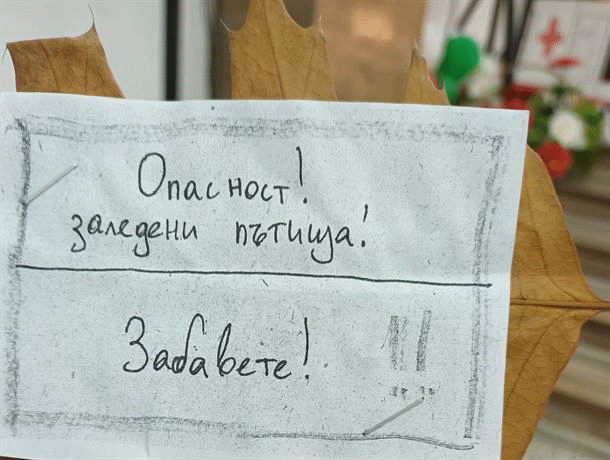 Опасност!
заледени пътища!
Забавете! !!